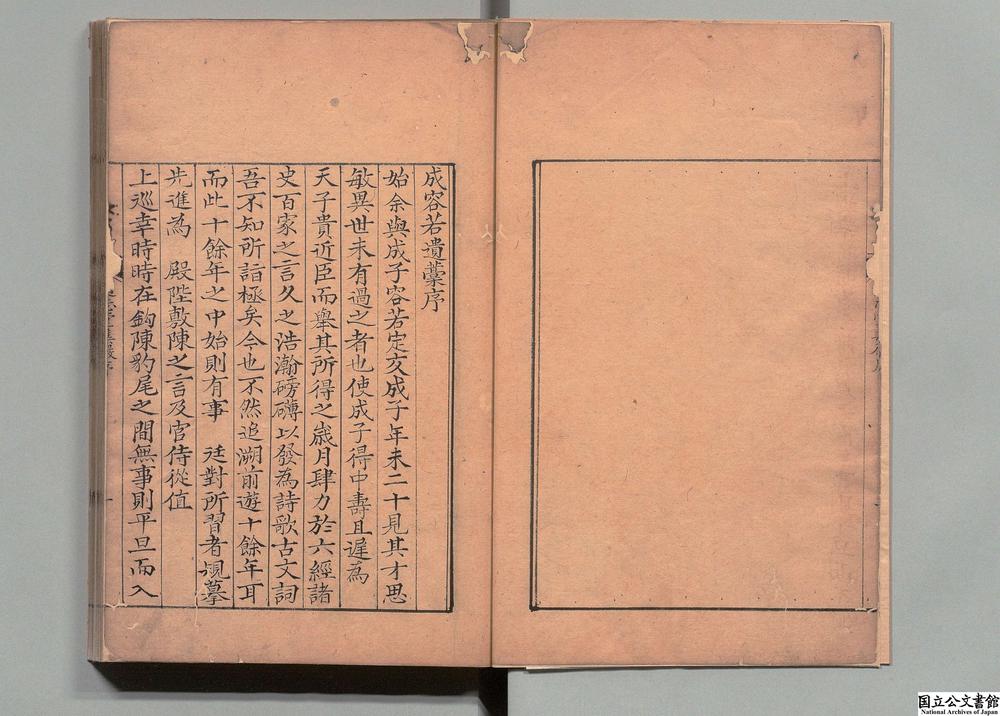 成容若遺藁序
始余與成子容若定交成子年未二十見其才思
敏異世未有過之者也使成子得中壽且遲為
天子貴近臣而舉其所得之歲月肆力於六經諸
史百家之言久之浩瀚磅礴以發為詩歌古文詞
吾不知所詣極矣今也不然追溯前遊十餘年耳
而此十餘年之中始則有事　廷對所習者規摹
先進為　殿陛敷陳之言及官侍從值
上巡幸時時在鈎陳豹尾之間無事則平旦而入
国立公文書館
National Archives of Japan